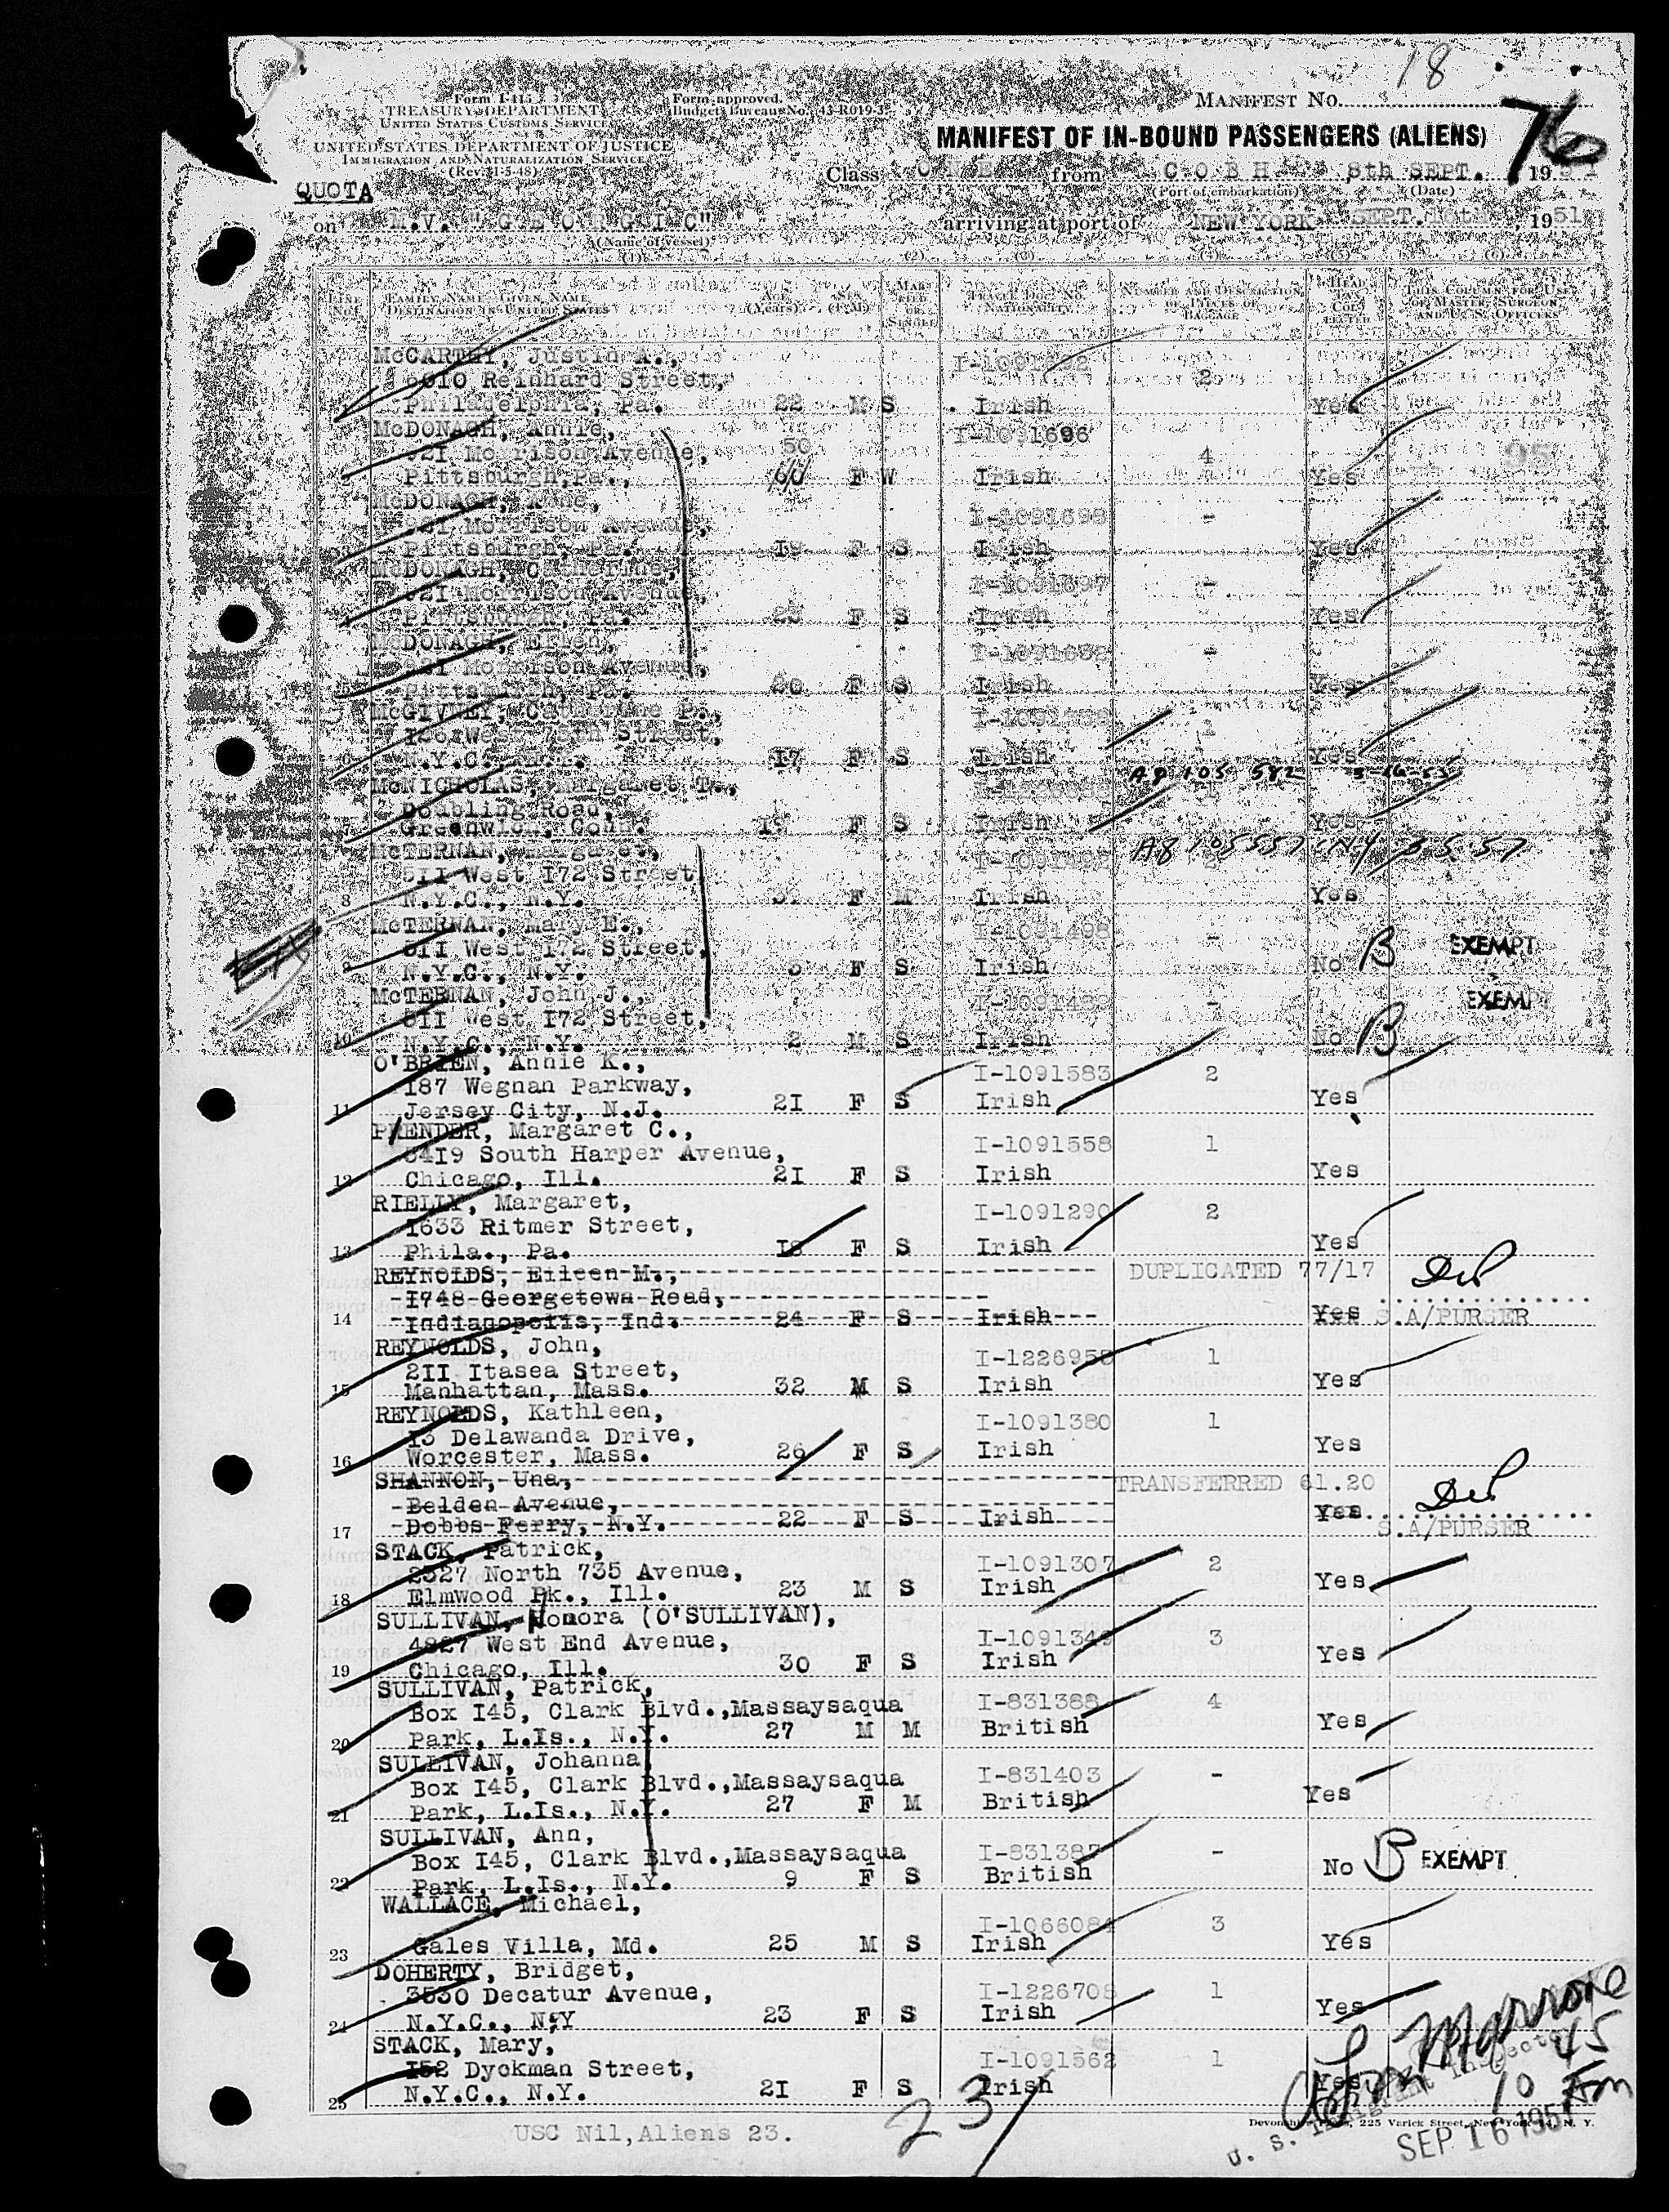 18
Form I-415
TREASURY DEPARTMENT
UNITED STATES CUSTOMS SERVICE
UNITED STATES DEPARTMENT OF JUSTICE
IMMIGRATION AND NATURALIZATION SERVICE
(Rev. 11-5-48)
Form approved.
Budget Bureau No. 43-R019-3
MANIFEST NO.
76
MANIFEST OF IN-BOUND PASSENGERS (ALIENS)
QUOTA
Class from C O B H 8th SEPT. 1951
(Port of embarkation) (Date)
on M.V. "G E O R G I C" arriving at port of NEW YORK SEPT. 16th, 1951
(Name of vessel)
(1) (2) (3) (4) (5) (6)
LINE No. FAMILY NAME—GIVEN NAME DESTINATION IN UNITED STATES AGE (Years) SEX (F-M) MARRIED OR SINGLE TRAVEL DOC. NO. NATIONALITY NUMBER AND DESCRIPTION OF PIECES OF BAGGAGE HEAD TAX COLLECTED THIS COLUMN FOR USE OF MASTER, SURGEON, AND U. S. OFFICERS
McCARTHY, Justin A.,
Reinhard Street, 2
Philadelphia, Pa. 22 M S Irish Yes
McDONAGH, Annie, I-1091696
Morrison Avenue, 50 4
2 Pittsburgh, Pa., F W Irish Yes
McDONAGH, Anne,
Morrison Avenue, I-1091698 -
3 Pittsburgh, Pa. 19 F S Irish Yes
McDONAGH, Catherine,
Morrison Avenue, I-1091697 -
Pittsburgh, Pa. F S Irish Yes
McDONAGH, Ellen,
Morrison Avenue, -
5 Pittsburgh, Pa. 20 F S Irish Yes
McGIVNEY, Catherine P.,
West Street, 1
6 N.Y.C. 17 F S Irish Yes
McNICHOLAS, Margaret T., A8 105 582
Doubling Road, 1
7 Greenwich, Conn. F S Irish Yes
McTERNAN, Margaret, A8 105557 NY
511 West 172 Street
8 N.Y.C., N.Y. F M Irish Yes
McTERNAN, Mary E.,
511 West 172 Street, I-1091498 - B EXEMPT
9 N.Y.C., N.Y. F S Irish No
McTERNAN, John J., EXEMPT
511 West 172 Street, - B
10 N.Y.C., N.Y. 2 M S Irish No
O'BRIEN, Annie K.,
187 Wegnan Parkway, I-1091583 2
11 Jersey City, N.J. 21 F S Irish Yes
PRENDER, Margaret C.,
5419 South Harper Avenue, I-1091558 1
12 Chicago, Ill. 21 F S Irish Yes
RIELLY, Margaret,
1633 Ritmer Street, I-1091290 2
13 Phila., Pa. 18 F S Irish Yes
REYNOLDS, Eileen M., DUPLICATED 77/17
1748 Georgetown Road,
14 Indianopolis, Ind. 24 F S Irish Yes S.A/PURSER
REYNOLDS, John,
211 Itasea Street, I-1226955 1
15 Manhattan, Mass. 32 M S Irish Yes
REYNOLDS, Kathleen,
13 Delawanda Drive, I-1091380 1
16 Worcester, Mass. 26 F S Irish Yes
SHANNON, Una, TRANSFERRED 61.20
Belden Avenue,
17 Dobbs Ferry, N.Y. 22 F S Irish Yes S.A/PURSER
STACK, Patrick,
2327 North 735 Avenue, I-1091307 2
18 Elmwood Pk., Ill. 23 M S Irish Yes
SULLIVAN, Honora (O'SULLIVAN),
4827 West End Avenue, I-1091349 3
19 Chicago, Ill. 30 F S Irish Yes
SULLIVAN, Patrick,
Box 145, Clark Blvd.,Massaysaqua I-831388 4
20 Park, L.Is., N.Y. 27 M M British Yes
SULLIVAN, Johanna,
Box 145, Clark Blvd.,Massaysaqua I-831403 -
21 Park, L.Is., N.Y. 27 F M British Yes
SULLIVAN, Ann,
Box 145, Clark Blvd.,Massaysaqua I-831387 - B EXEMPT
22 Park, L.Is., N.Y. 9 F S British No
WALLACE, Michael,
I-1066084 3
23 Gales Villa, Md. 25 M S Irish Yes
DOHERTY, Bridget,
3530 Decatur Avenue, I-1226708 1
24 N.Y.C., N.Y 23 F S Irish Yes
STACK, Mary,
152 Dyckman Street, I-1091562 1
25 N.Y.C., N.Y. 21 F S Irish Yes
10 45 Am
U. S. Immigrant Inspector
USC Nil,Aliens 23.
23/
225 Varick Street, New York 14, N. Y.
SEP 16 1951